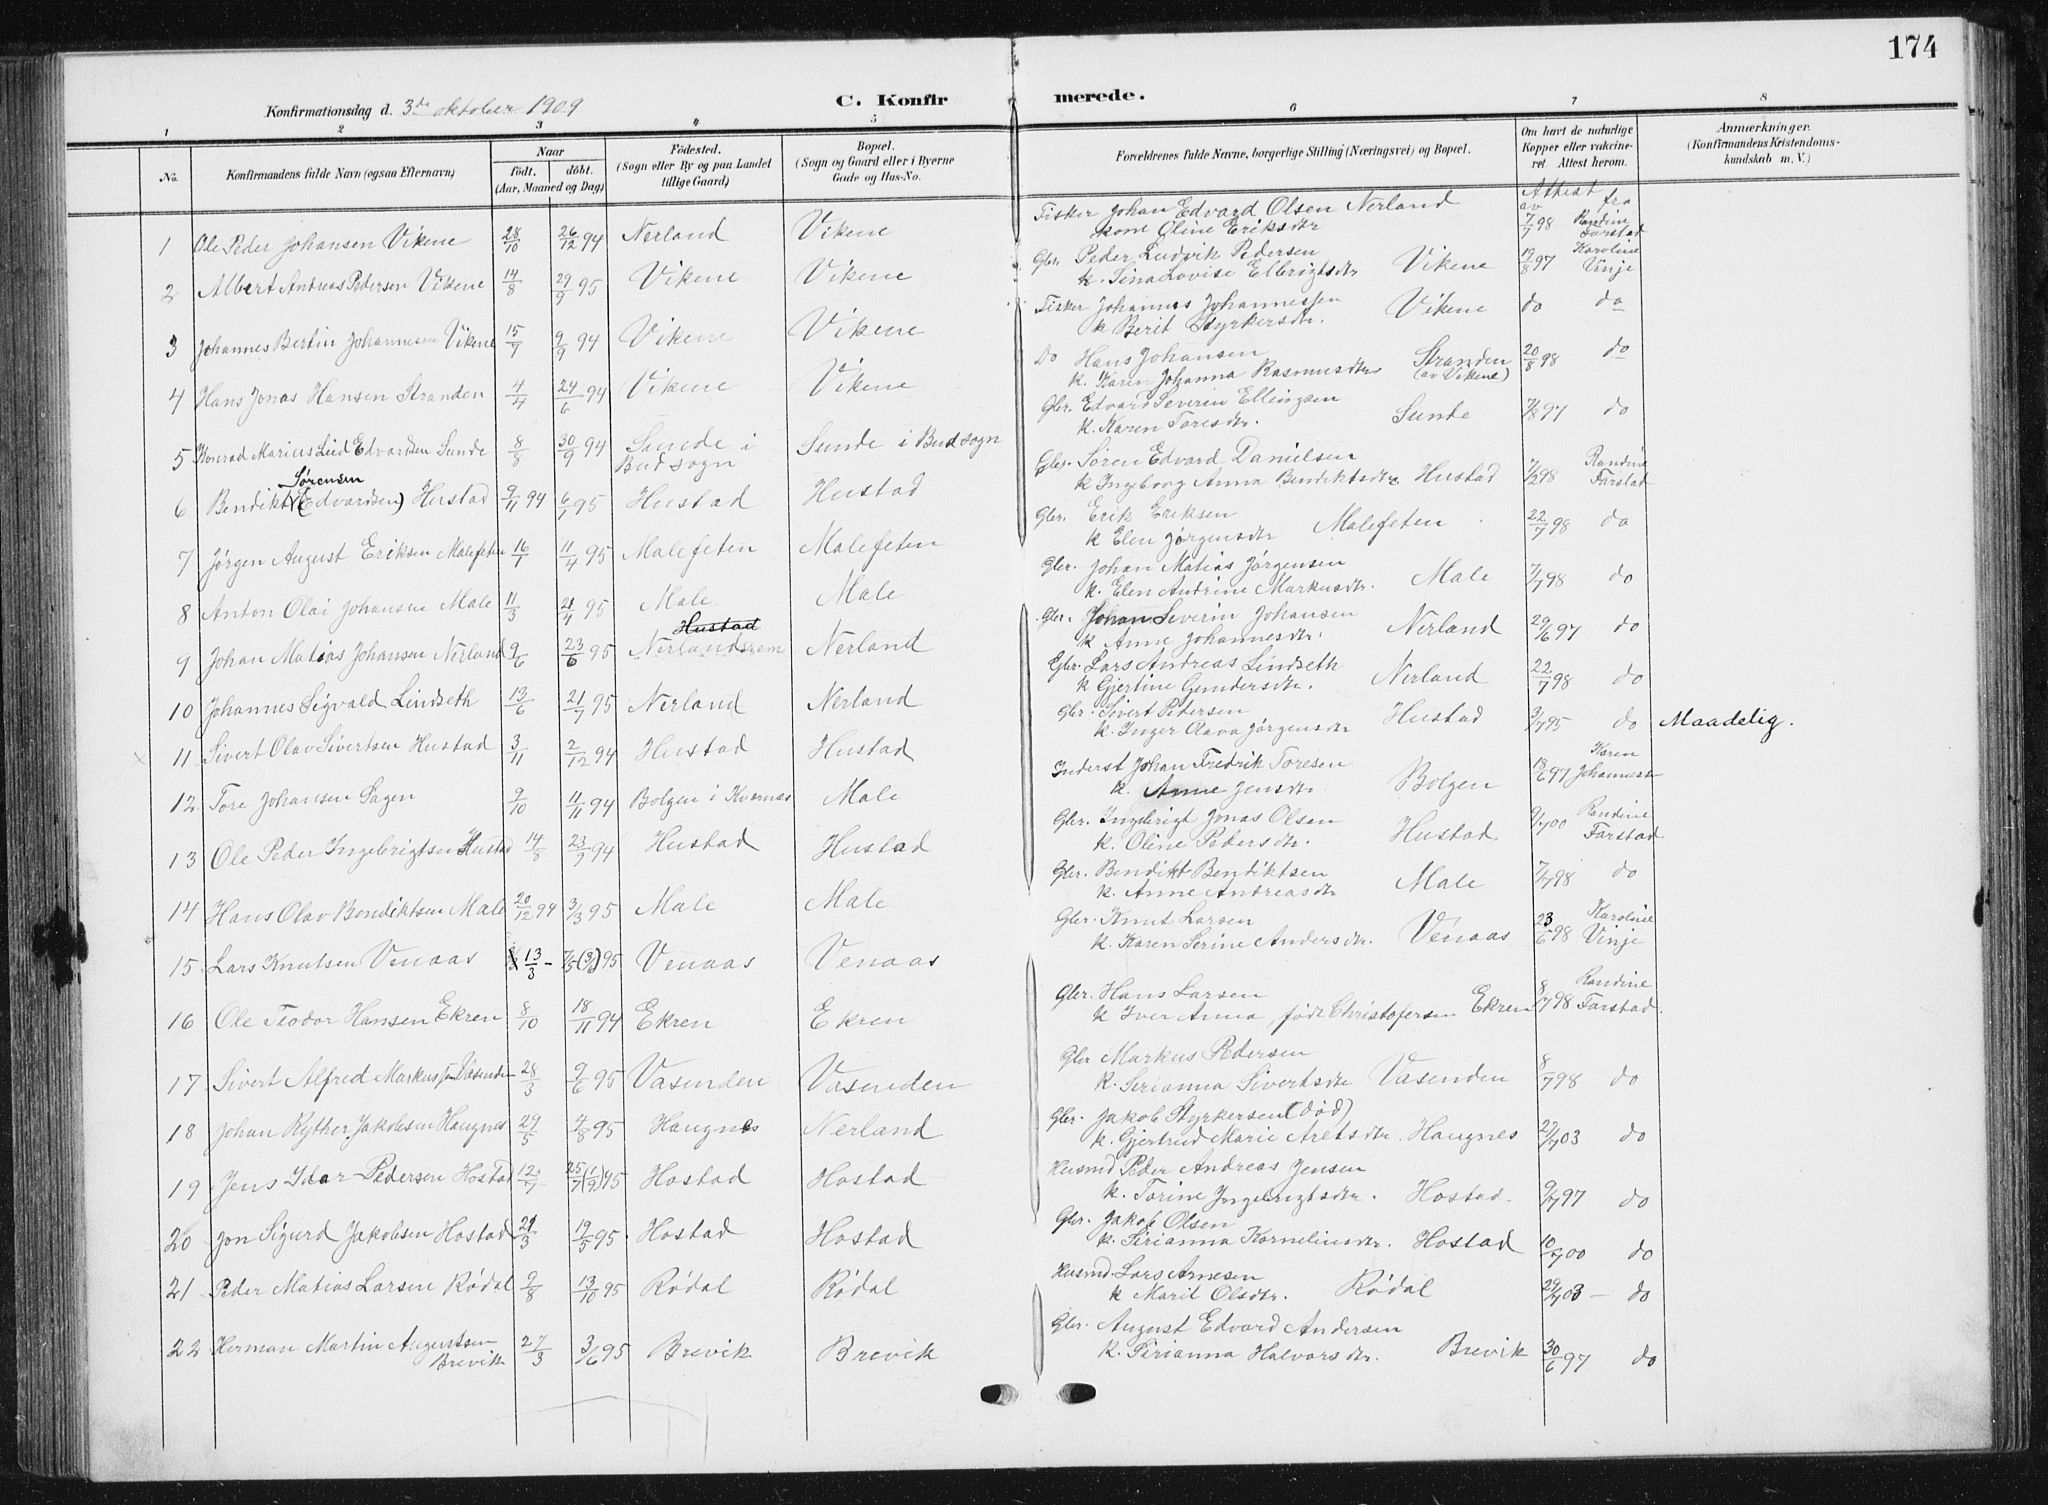 174
Konfirmationsdag d. 3de oktober 1909
C. Konfirmerede.
1 2 3 4 5 6 7 8
No.
Konfirmandens fulde Navn (ogsaa Efternavn)
Naar
født. døbt.
(Aar, Maaned og Dag)
Fødested.
(Sogn eller By og paa Landet
tillige Gaard)
Bopæl.
(Sogn og Gaard eller i Byerne
Gade og Hus-No.
Forældrenes fulde Navne, borgerlige Stilling (Næringsvei) og Bopæl.
Om havt de naturlige
Kopper eller vakcine-
ret. Attest herom.
Anmærkninger.
(Konfirmandens Kristendoms-
kundskab m. V.)
Attest
av fra
1 Ole Peder Johansen Vikene 28/10 26/12 94 Nerland Vikene Fisker Johan Edvard Olsen Nerland 7/7 98 Randine Farstad
kone Oline Eriksdtr
2 Albert Andreas Pedersen Vikene 14/8 29/9 95 Vikene Vikene Gbr. Peder Ludvik Pedersen Vikene 19/8 97 Karoline Vinje
k. Sina Lovise Ellingsdtr
3 Johannes Bertin Johannesen Vikene 15/7 9/9 94 Vikene Vikene Fisker Johannes Johannessen Vikene do do
k Berit Styrkersdtr.
4 Hans Jonas Hansen Stranden 4/4 24/6 94 Vikene Vikene Do Hans Johansen Stranden (av Vikene) 20/8 98 do
k. Karen Johanna Rasmusdtr
5 Konrad Marius Edvardsen Sunde 8/8 30/9 94 Sunde i Bud sogn Sunde i Bud sogn Gbr. Edvard Severin Ellingsen Sunde 7/8 97 do
k. Karen Toresdtr.
6 Bendikt Sørensen (Edvardsen) Hustad 9/11 94 6/1 95 Hustad Hustad Gbr. Søren Edvard Danielsen Hustad 7/2 98 Randine Farstad
k Ingeborg Anna Bendiktsdtr
7 Jørgen August Eriksen Malefeten 16/1 11/4 95 Malefeten Malefeten Gbr. Erik Eriksen Malefeten 22/7 98 do
k Elen Jørgensdtr
8 Anton Olai Johansen Male 11/3 21/4 95 Male Male Gbr. Johan Matias Jørgensen Male 7/7 98 do
k. Elen Andrine Markusdtr.
9 Johan Matias Johansen Nerland 9/6 23/6 95 Hustad Nerlandsrem Nerland Gbr. Johan Severin Johansen Nerland 29/6 97 do
k Anne Johannesdtr.
10 Johannes Sigvald Lindseth 13/6 21/7 95 Nerland Nerland Gbr. Lars Andreas Lindseth Nerland 22/7 98 do
k Gjertine Gundersdtr.
11 Sivert Olav Sivertsen Hustad 3/11 2/12 94 Hustad Hustad Gbr. Sivert Pedersen Hustad 3/7 95 do Maadelig.
k. Inger Olava Jørgensdtr
12 Tore Johansen Sagen 9/10 11/11 94 Bolgen i Kvernæs Male Inderst Johan Fredrik Toresen Bolgen 18/6 97 Karen Johannessen
k. Anne Jensdtr.
13 Ole Peder Ingebrigtsen Hustad 14/8 23/9 94 Hustad Hustad Gbr. Ingebrigt Jonas Olsen Hustad 9/7 00 Randine Farstad
k. Oline Pedersdtr.
14 Hans Olav Bendiktsen Male 20/12 94 3/3 95 Male Male Gbr. Bendikt Bendiktsen Male 7/7 98 do
k. Anne Andreasdtr
15 Lars Knutsen Venaas 13/3 - 7/5 (3/6) 95 Venaas Venaas Gbr. Knut Larsen Venaas 23/6 98 Karoline Vinje
k. Karen Serine Andersdtr.
16 Ole Teodor Hansen Ekren 8/10 18/11 94 Ekren Ekren Gbr. Hans Larsen Ekren 8/7 98 Randine Farstad.
k Iver Anna, født Christofersen
17 Sivert Alfred Markussen Vasenden 28/3 9/6 95 Vasenden Vasenden Gbr Markus Pedersen Vasenden 8/7 98 do
k. Serianna Sivertsdtr
18 Johan Ryther Jakobsen Haugnes 29/5 4/8 95 Haugnes Nerland Gbr. Jakob Styrkersen (død) Haugnes 27/7 03 do
k. Gjertrud Marie Aretsdtr.
19 Jens Idar Pedersen Hostad 12/7 25/7 (1/9) 95 Hostad Hostad Husmd Peder Andreas Jensen Hostad 9/7 97 do
k. Torine Ingebrigtsdtr.
20 Jon Sigurd Jakobsen Hostad 21/3 19/5 95 Hostad Hostad Gbr. Jakob Olsen Hostad 10/7 00 do
k. Serianna Korneliusdtr.
21 Peder Matias Larsen Rødal 9/8 13/10 95 Rødal Rødal Husmd Lars Arnesen Rødal 29/7 03 - do
k Marit Olsdtr.
22 Herman Martin Augustsen Brevik 27/3 3/6 95 Brevik Brevik Gbr. August Edvard Andersen Brevik 30/6 97 do
k. Serianna Halvorsdtr.